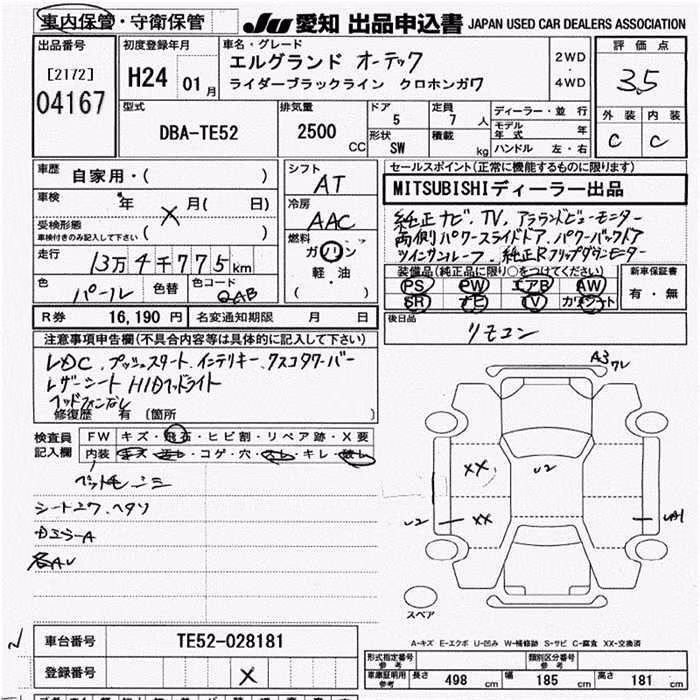 車内保管・守衛保管 JU 愛知 出品申込書 JAPAN USED CAR DEALERS ASSOCIATION
出品番号 [2172] 04167
初度登録年月 H24 01月
車名・グレード エルグランド オーテック
ライダーブラックライン クロホンガワ
2WD ・ 4WD
評価点 3.5
外装 内装
C C
型式 DBA-TE52
排気量 2500 CC
ドア 5 定員 7 人
形状 SW 積載 kg
ディーラー・並行
モデル年式 年
ハンドル 左・右
車歴 自家用・( )
車検 年 X 月( 日)
受検形態 車検付きのみ記入して下さい ( )
走行 13万4千775km
色 パール 色替 色コード QAB
シフト AT
冷房 AAC
燃料 ガソリン
軽・油
( )
セールスポイント(正常に機能するものに限ります)
MITSUBISHIディーラー出品
純正ナビ、TV、アラウンドビューモニター
両側パワースライドドア、パワーバックドア
ツインサンルーフ、純正Rフリップダウンモニター
装備品(純正品に限り○をつけてください)
PS PW エアB AW
SR ナビ TV カワシート
新車保証書 有・無
後日品 リモコン
R券 16,190 円 名変通知期限 月 日
注意事項申告欄(不具合合内容等は具体的に記入して下さい)
LDC、プッシュスタート、インテリキー、クスコタワーバー
レザーシート HIDヘッドライト
ヘッドフォンなし
修復歴 有 (箇所 )
検査員記入欄
FW キズ・飛石・ヒビ割・リペア跡・X要
内装 キズ・汚レ・コゲ・穴・スレ・キレ・破レ
シートコワ、ヘタリ
各AU
A3 ワレ
XX U2
U2 XX UA1
スペア
A-キズ E-エクボ U-凹み W-補修跡 S-サビ C-腐食 XX-交換済
車台番号 TE52-028181
登録番号 X
形式指定番号 参考 類別区分番号 参考
車庫証明用 参考 長さ 498 cm 幅 185 cm 高さ 181 cm